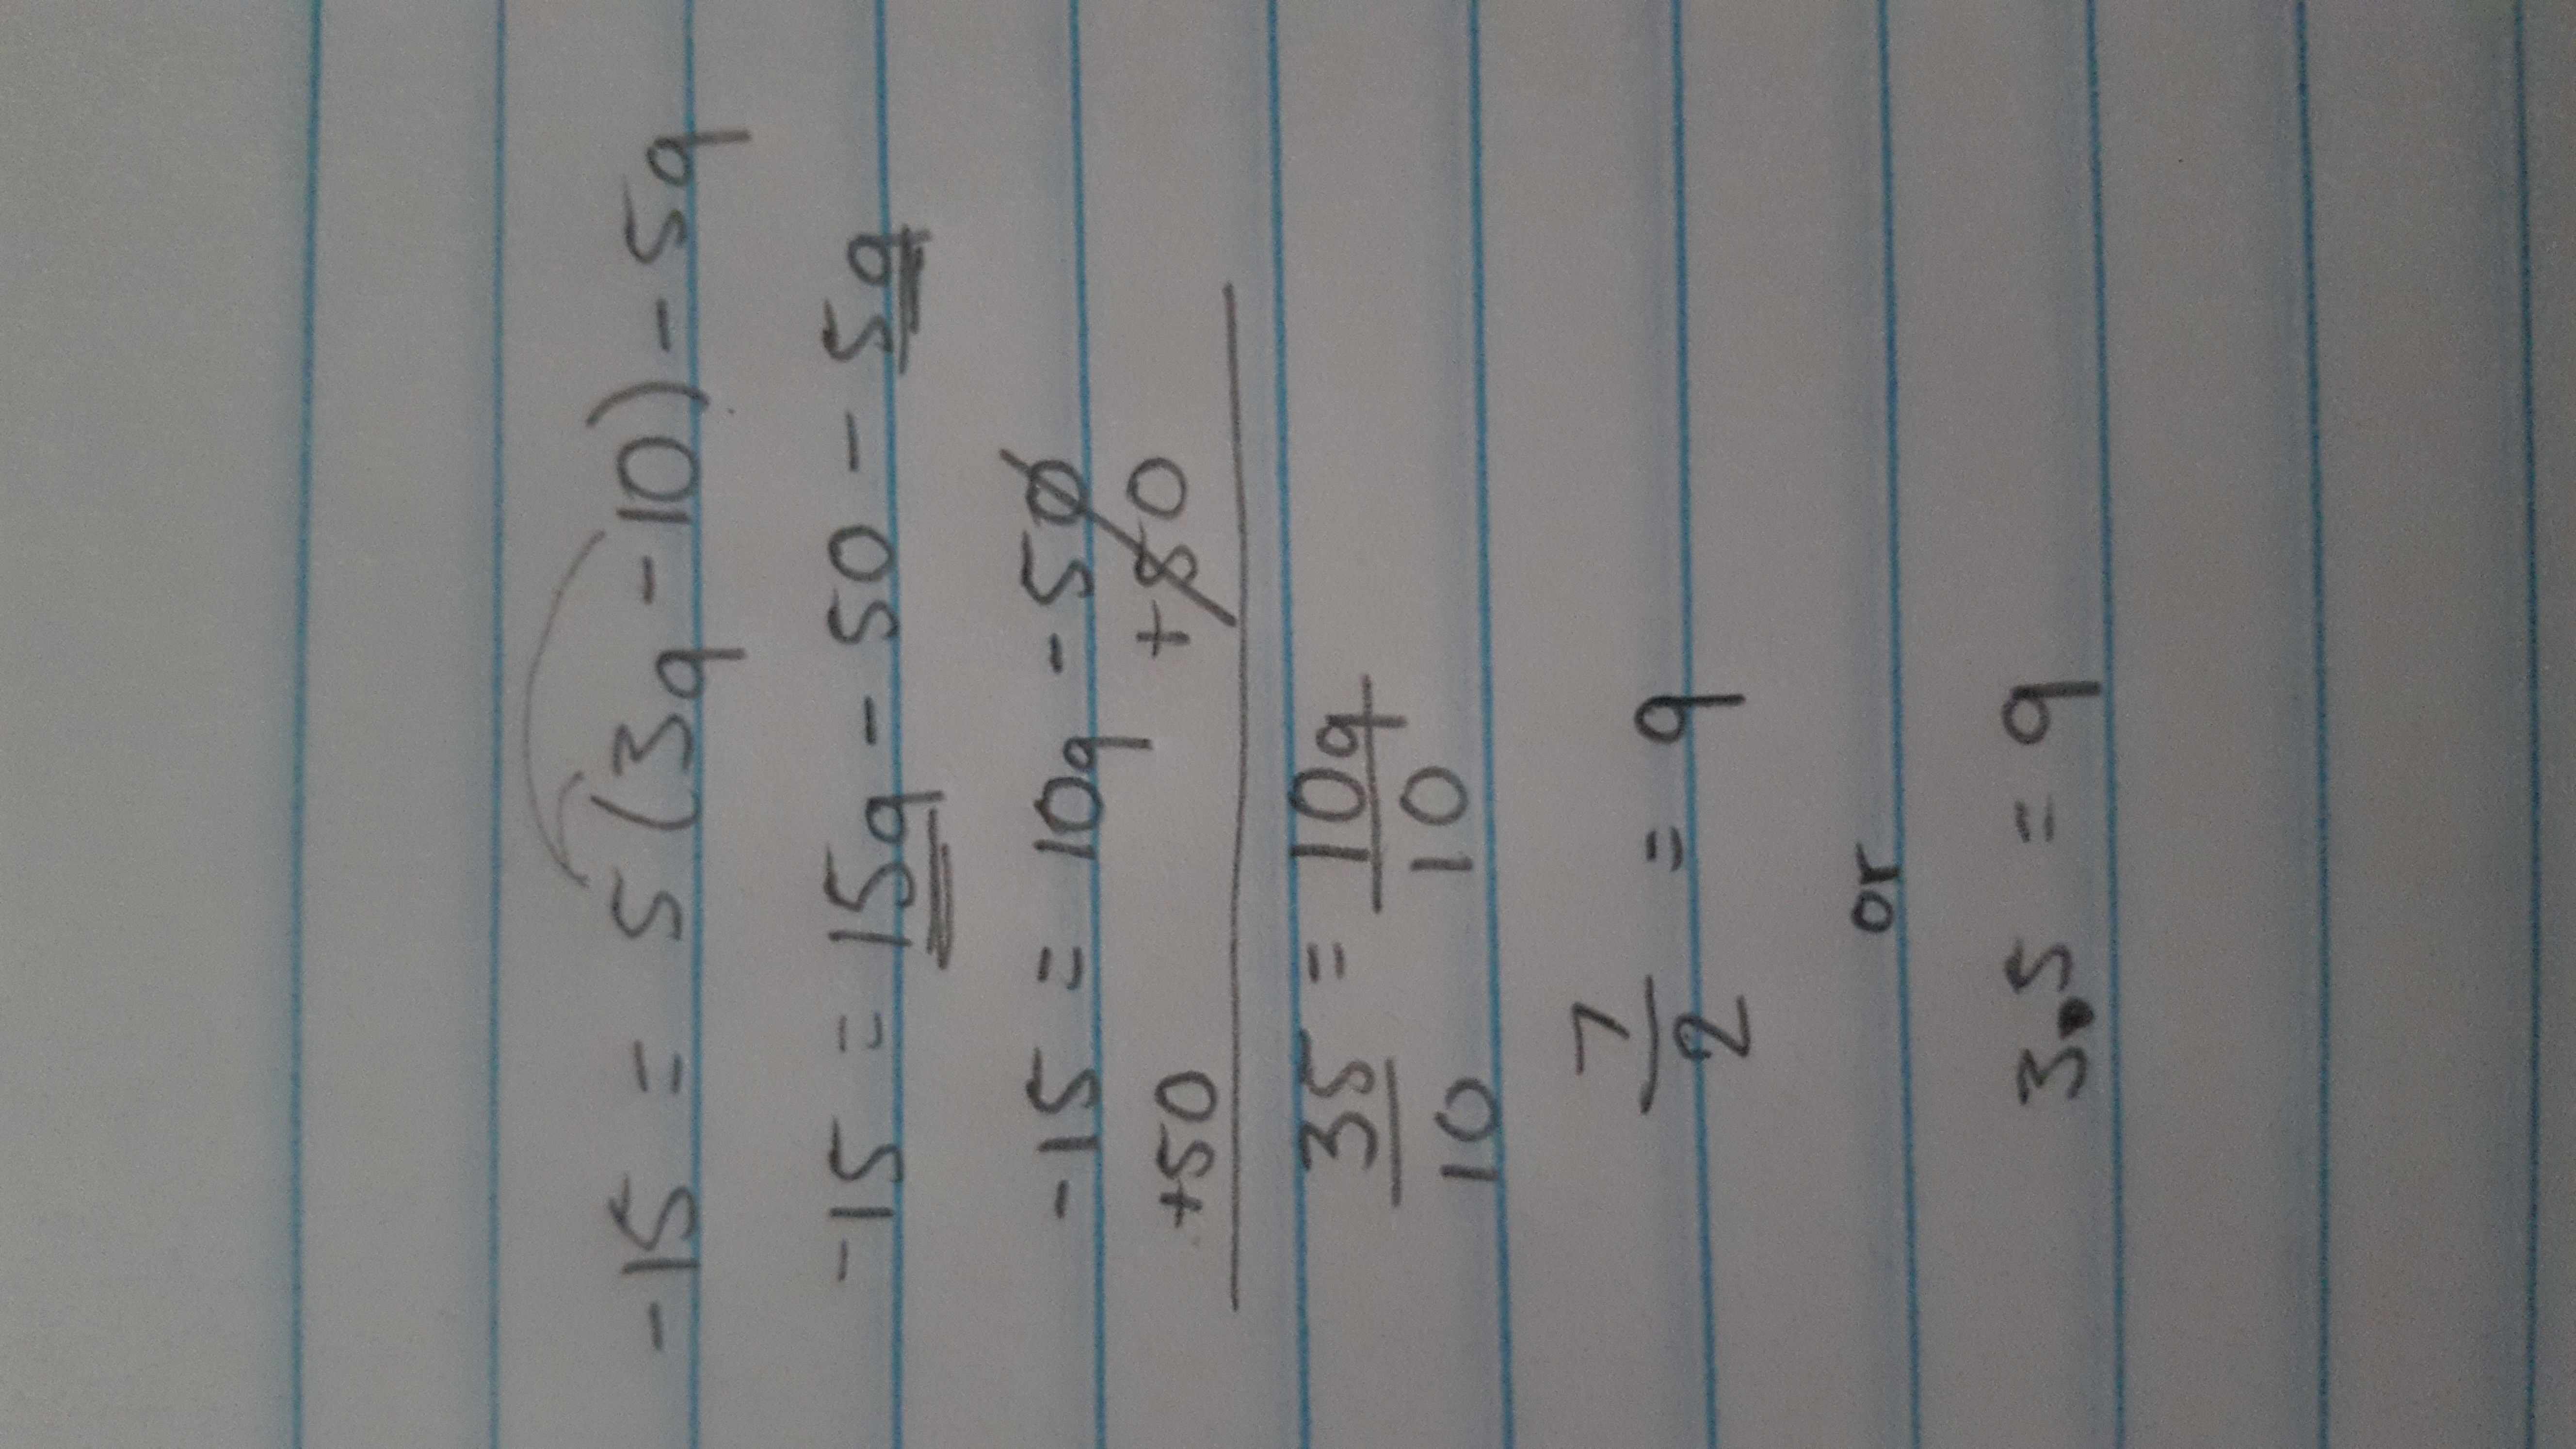 -15 = 5(3q - 10) - 5q
-15 = 15q - 50 - 5q
-15 = 10q - 50
+50 +50
35 = 10q
10 10
7 = q
2
or
3.5 = q